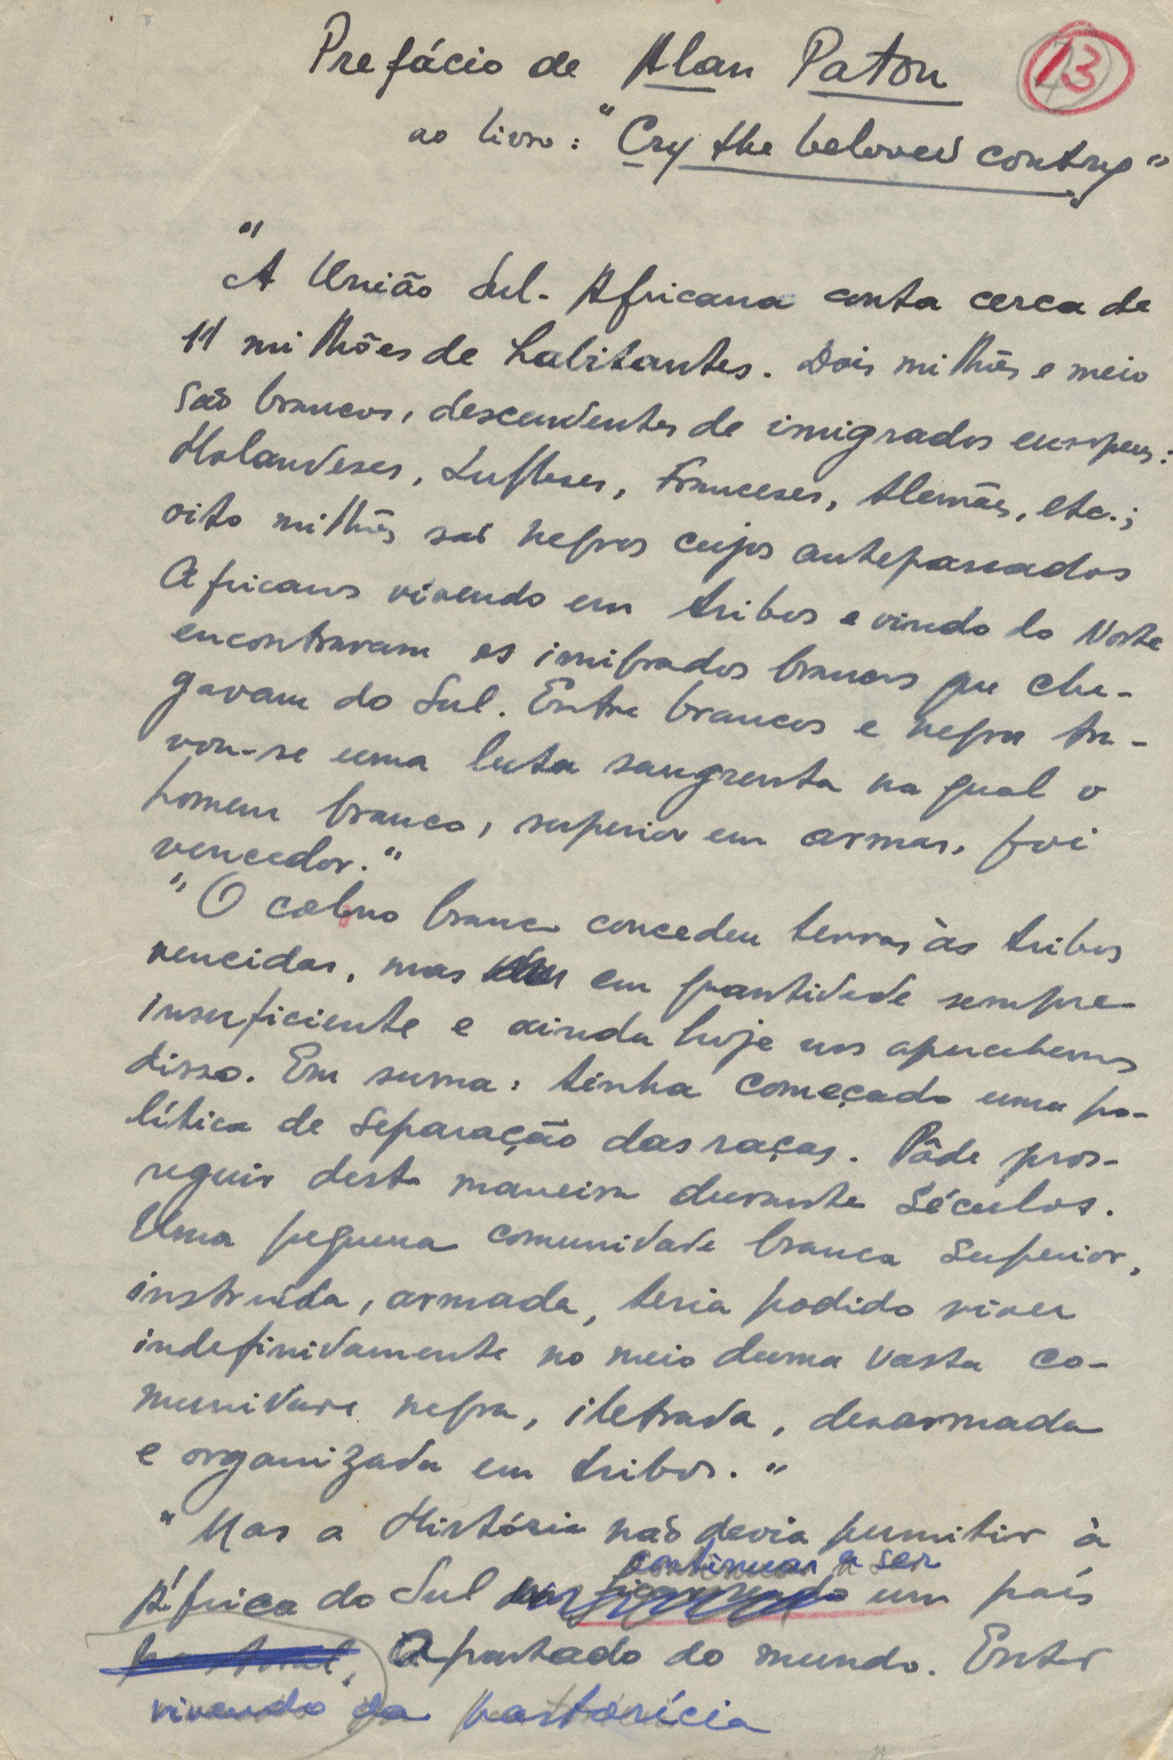 Prefácio de Alan Paton
13
ao livro: "Cry the beloved contry"
"A União Sul-Africana conta cerca de
11 milhões de habitantes. Dois milhões e meio
são brancos, descendentes de imigrados europeus:
Holandeses, Ingleses, Franceses, Alemães, etc.;
oito milhões são negros cujos antepassados
Africanos vivendo em tribos e vindo do Norte
encontravam os imigrados brancos que che-
gavam do Sul. Entre brancos e negros tra-
vou-se uma luta sangrenta na qual o
homem branco, superior em armas, foi
vencedor."
"O colono branco concedeu terras às tribos
vencidas, mas em quantidade sempre
insuficiente e ainda hoje nos apercebemos
disso. Em suma: tinha começado uma po-
lítica de separação das raças. Pôde pros-
seguir desta maneira durante séculos.
Uma pequena comunidade branca superior,
instruída, armada, teria podido viver
indefinidamente no meio duma vasta co-
munidade negra, iletrada, desarmada
e organizada em tribos."
"Mas a História não devia permitir à
continuar a ser
África do Sul um país
pastoral, Apartado do mundo. Entre
vivendo da pastorícia